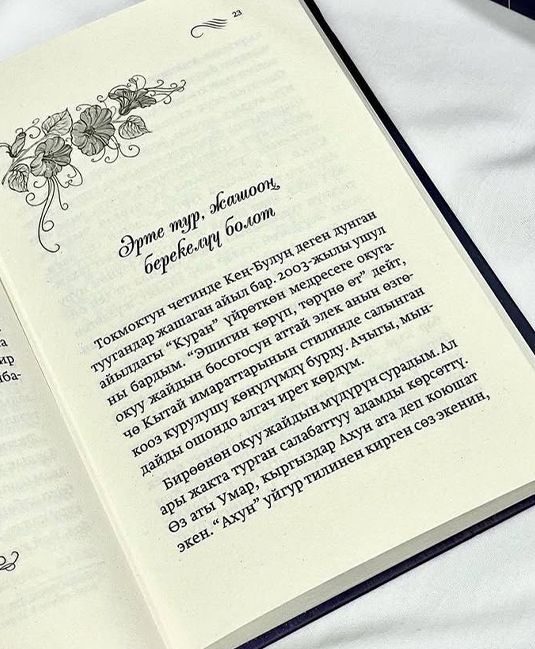 23
Эрте тур, жашооң
берекелүү болот
Токмоктун четинде Кең-Булуң деген дунган
туугандар жашаган айыл бар. 2003-жылы ушул
айылдагы “Куран” үйрөткөн медресеге окуга-
ны бардым. “Эшигин көрүп, төрүнө өт” дейт,
окуу жайдын босогосун аттай элек анын өзгө-
чө Кытай имараттарынын стилинде салынган
кооз курулушу көңүлүмдү бурду. Ачыгы, мын-
дайды ошондо алгач ирет көрдүм.
Бирөөнөн окуу жайдын мүдүрүн сурадым. Ал
ары жакта турган салабаттуу адамды көрсөттү.
Өз аты Умар, кыргыздар Ахун ата деп коюшат
экен. “Ахун” уйгур тилинен кирген сөз экенин,